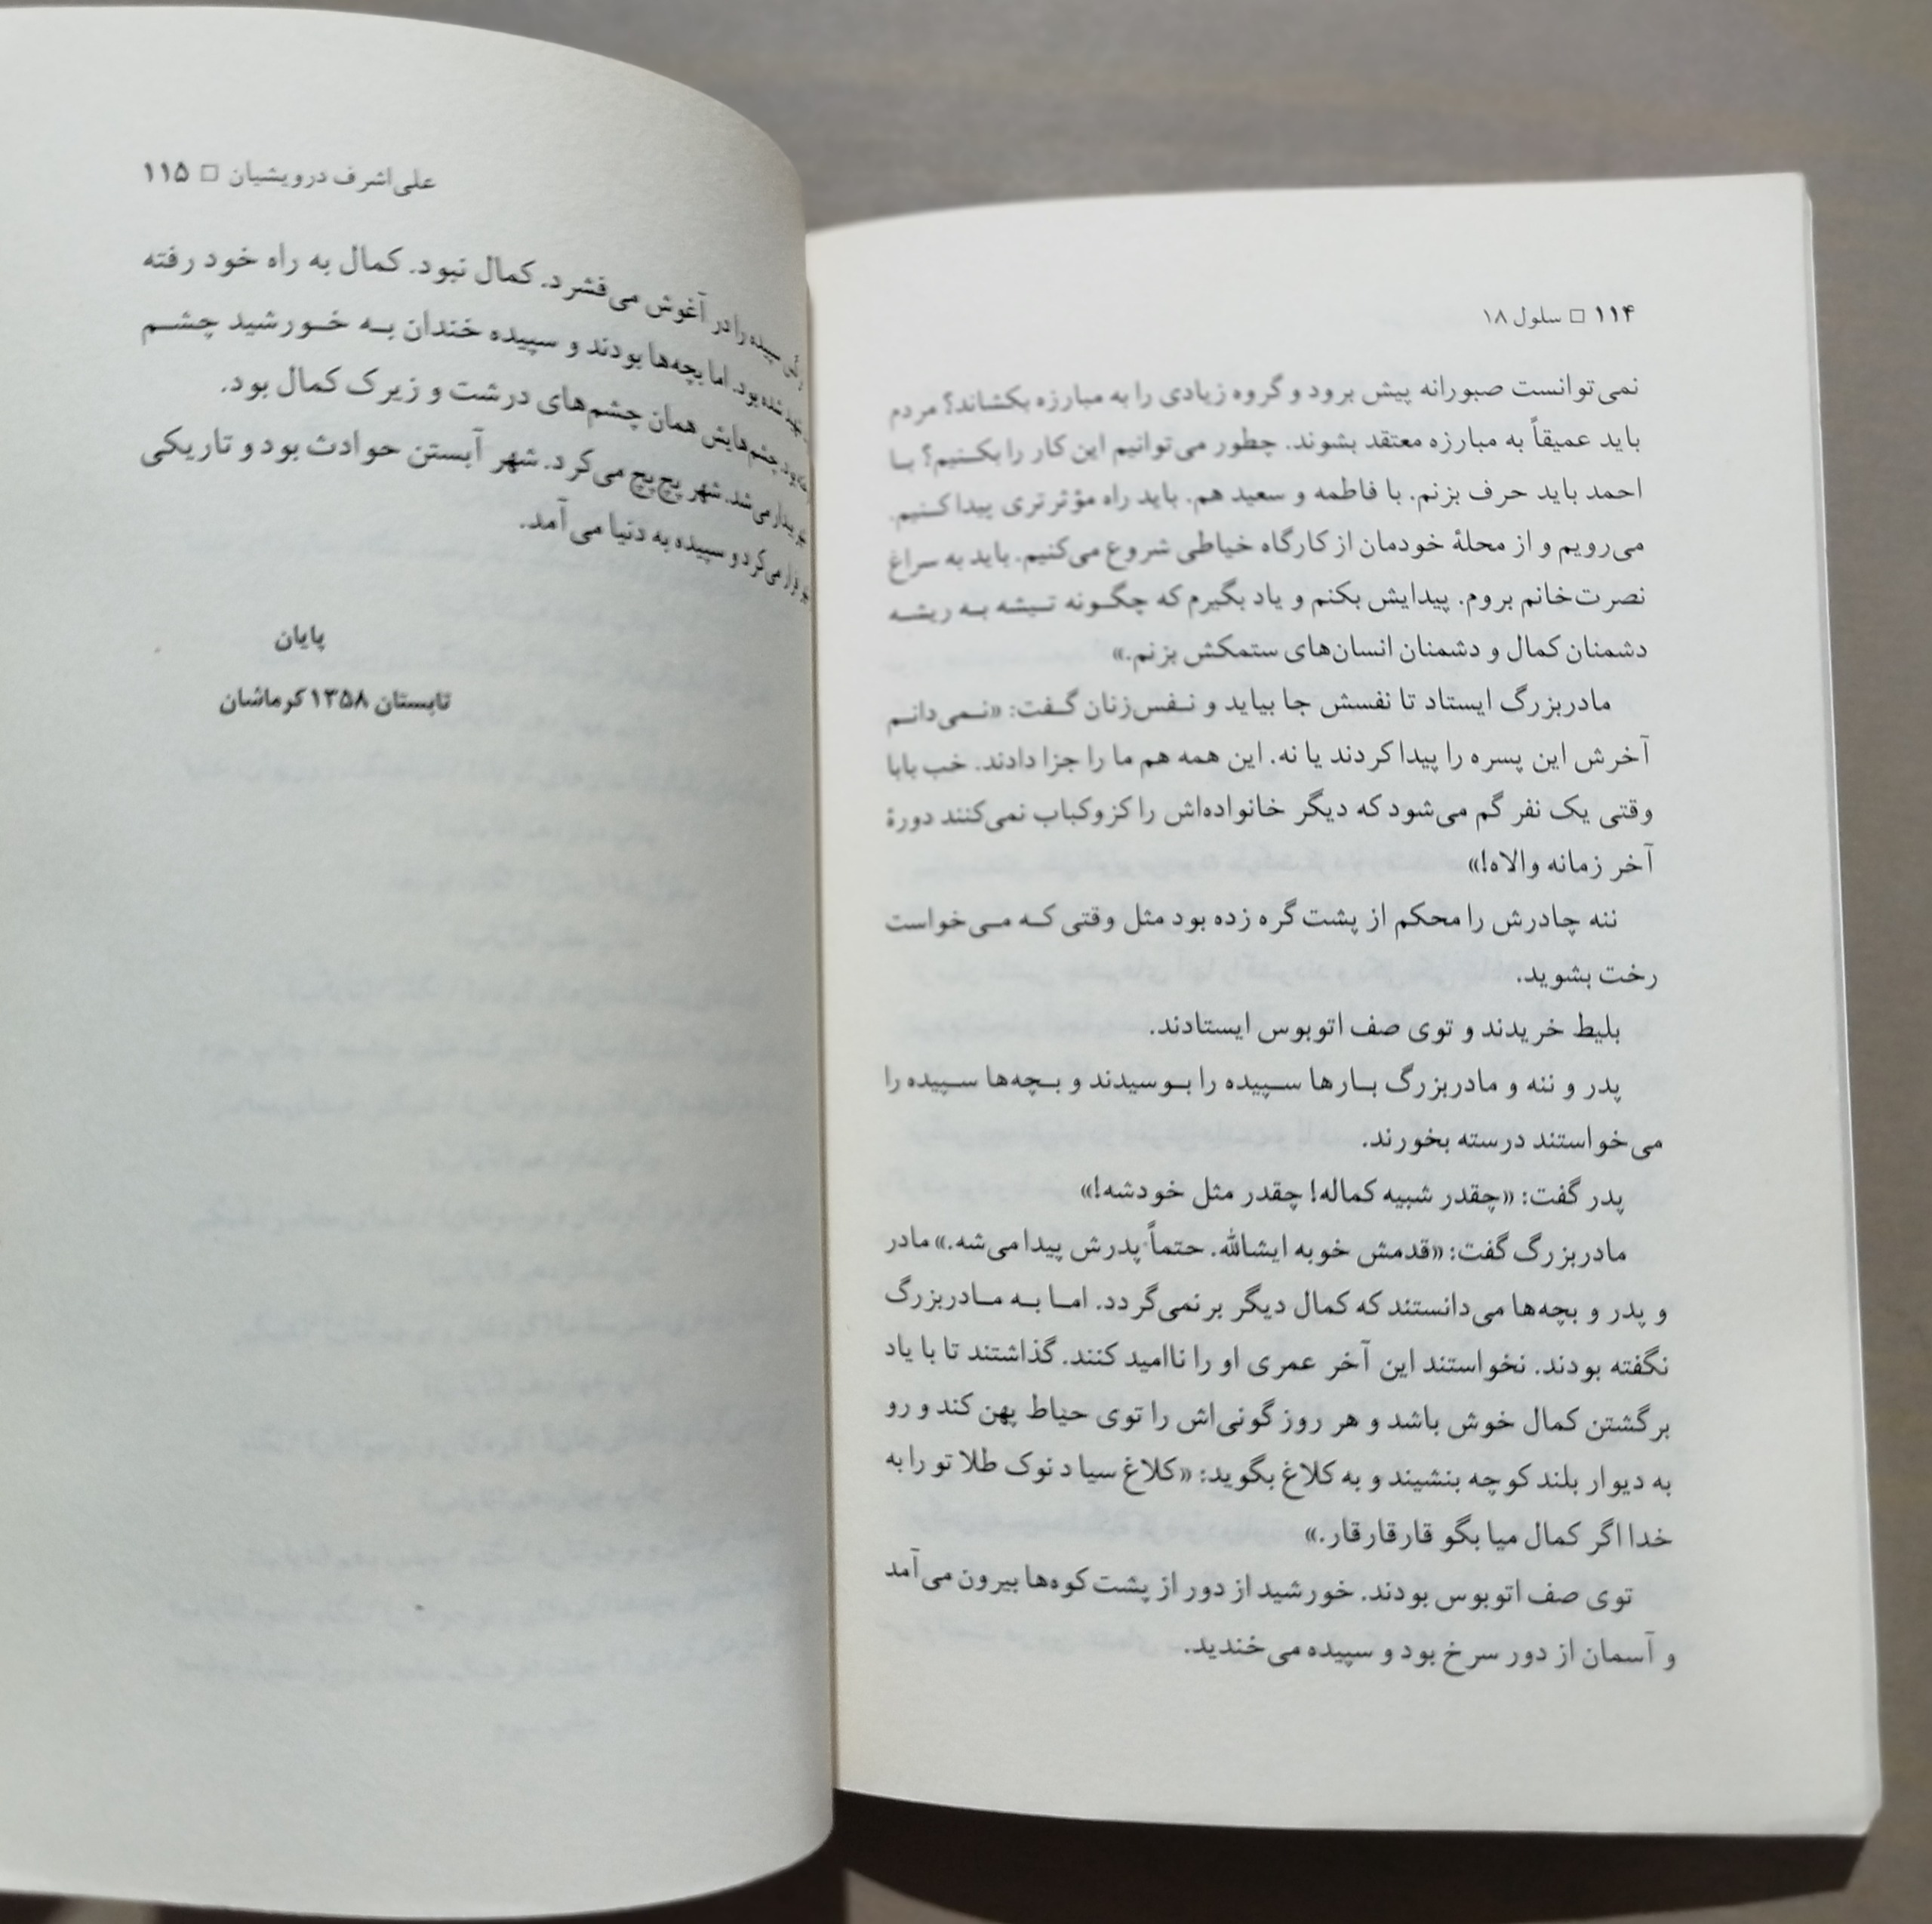 ۱۱۴ □ سلول ۱۸
نمی‌توانست صبورانه پیش برود و گروه زیادی را به مبارزه بکشاند؟ مردم
باید عمیقاً به مبارزه معتقد بشوند. چطور می‌توانیم این کار را بکنیم؟ با
احمد باید حرف بزنم. با فاطمه و سعید هم. باید راه مؤثرتری پیدا کنیم.
می‌رویم و از محلهٔ خودمان از کارگاه خیاطی شروع می‌کنیم. باید به سراغ
نصرت‌خانم بروم. پیدایش بکنم و یاد بگیرم که چگونه تیشه به ریشه
دشمنان کمال و دشمنان انسان‌های ستمکش بزنم.»
مادربزرگ ایستاد تا نفسش جا بیاید و نفس‌زنان گفت: «نمی‌دانم
آخرش این پسره را پیدا کردند یا نه. این همه هم ما را جزا دادند. خب بابا
وقتی یک نفر گم می‌شود که دیگر خانواده‌اش را کزوکباب نمی‌کنند دورهٔ
آخر زمانه والاه!»
ننه چادرش را محکم از پشت گره زده بود مثل وقتی که می‌خواست
رخت بشوید.
بلیط خریدند و توی صف اتوبوس ایستادند.
پدر و ننه و مادربزرگ بارها سپیده را بوسیدند و بچه‌ها سپیده را
می‌خواستند درسته بخورند.
پدر گفت: «چقدر شبیه کماله! چقدر مثل خودشه!»
مادربزرگ گفت: «قدمش خوبه ایشالله. حتماً پدرش پیدا می‌شه.» مادر
و پدر و بچه‌ها می‌دانستند که کمال دیگر برنمی‌گردد. اما به مادربزرگ
نگفته بودند. نخواستند این آخر عمری او را ناامید کنند. گذاشتند تا با یاد
برگشتن کمال خوش باشد و هر روز گونی‌اش را توی حیاط پهن کند و رو
به دیوار بلند کوچه بنشیند و به کلاغ بگوید: «کلاغ سیا د نوک طلا تو را به
خدا اگر کمال میا بگو قارقارقار.»
توی صف اتوبوس بودند. خورشید از دور از پشت کوه‌ها بیرون می‌آمد
و آسمان از دور سرخ بود و سپیده می‌خندید.
علی‌اشرف درویشیان □ ۱۱۵
سپیده را در آغوش می‌فشرد. کمال نبود. کمال به راه خود رفته
شده بود. اما بچه‌ها بودند و سپیده خندان به خورشید چشم
بود. چشم‌هایش همان چشم‌های درشت و زیرک کمال بود.
بیدار می‌شد. شهر پچ‌پچ می‌کرد. شهر آبستن حوادث بود و تاریکی
فرار می‌کرد و سپیده به دنیا می‌آمد.
پایان
تابستان ۱۳۵۸ کرماشان